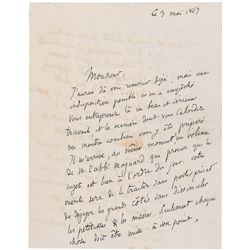 Le 3 mai 1867
Monsieur,
J'aurais dû vous remercier déjà, mais une
indisposition pénible m'en a empêché
Vous entreprenez là un beau et sérieux
travail et la manière dont vous l'abordez
me montre combien vous y êtes préparé
Il m'arrive, au même moment un volume
de M. l'abbé Maynard qui prouve que le
sujet est bien à l'ordre du jour. votre
mérite sera de le traiter sans parti pris et
de dégager les grands côtés sans dissimuler
les petitesses & les misères. Seulement chaque
chose doit être mise à son point,